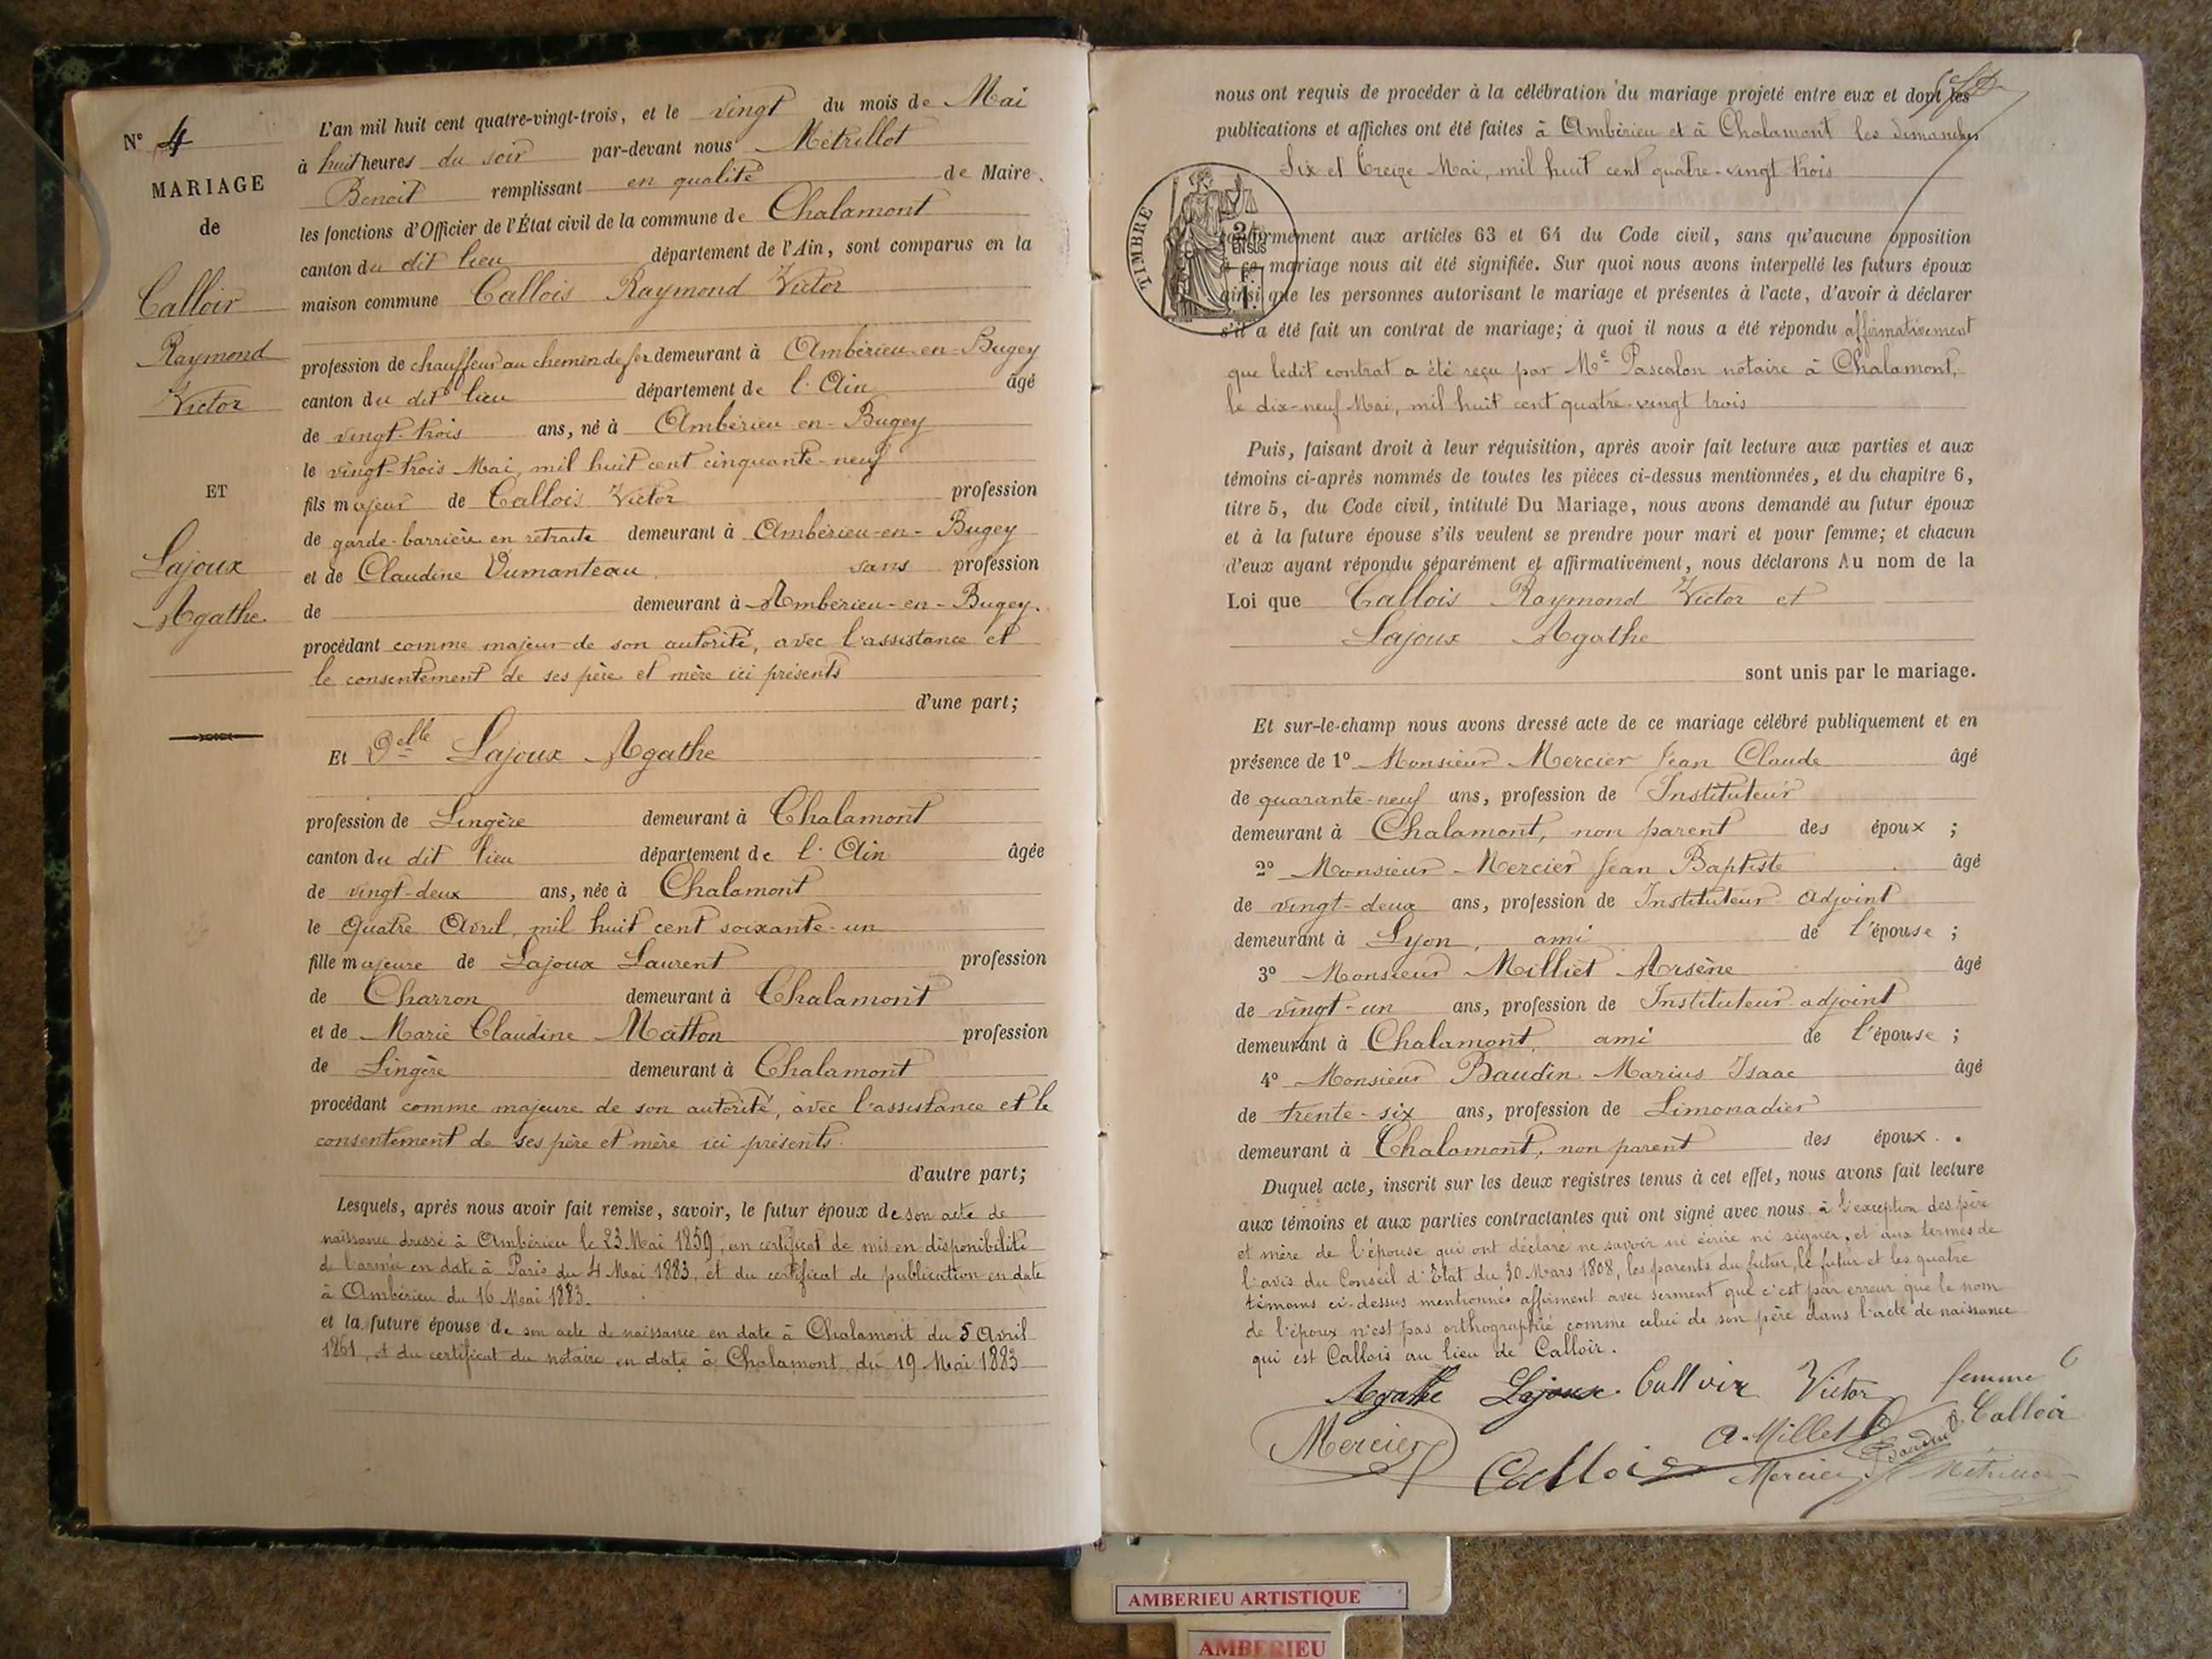 N° 4
MARIAGE
de
Calloir
Raymond
Victor
ET
Lajoux
Agathe.
L'an mil huit cent quatre-vingt-trois, et le vingt du mois de Mai
à huit heures du soir par-devant nous Métrillot
Benoit remplissant en qualité de Maire
les fonctions d'Officier de l'État civil de la commune de Chalamont
canton du dit lieu département de l'Ain, sont comparus en la
maison commune Callois Raymond Victor
profession de chauffeur au chemin de fer demeurant à Ambérieu-en-Bugey
canton du dit lieu département de l'Ain âgé
de vingt-trois ans, né à Ambérieu-en-Bugey
le vingt-trois Mai, mil huit cent cinquante-neuf
fils majeur de Callois Victor profession
de garde-barrière en retraite demeurant à Ambérieu-en-Bugey
et de Claudine Dumanteau sans profession
de demeurant à Ambérieu-en-Bugey.
procédant comme majeur de son autorité, avec l'assistance et
le consentement de ses père et mère ici présents
d'une part;
Et Delle Lajoux Agathe
profession de Lingère demeurant à Chalamont
canton du dit lieu département de l'Ain âgée
de vingt-deux ans, née à Chalamont
le quatre Avril, mil huit cent soixante-un
fille majeure de Lajoux Laurent profession
de Charron demeurant à Chalamont
et de Marie Claudine Matton profession
de Lingère demeurant à Chalamont
procédant comme majeure de son autorité, avec l'assistance et le
consentement de ses père et mère ici présents.
d'autre part;
Lesquels, après nous avoir fait remise, savoir, le futur époux de son acte de
naissance dressé à Ambérieu le 23 Mai 1859, un certificat de mis en disponibilité
de l'armée en date à Paris du 4 Mai 1883, et du certificat de publication en date
à Ambérieu du 16 Mai 1883.
et la future épouse de son acte de naissance en date à Chalamont du 5 Avril
1861, et du certificat du notaire en date à Chalamont du 19 Mai 1883
nous ont requis de procéder à la célébration du mariage projeté entre eux et dont les
publications et affiches ont été faites à Ambérieu et à Chalamont les dimanches
Six et treize Mai, mil huit cent quatre-vingt trois
TIMBRE
conformément aux articles 63 et 64 du Code civil, sans qu'aucune opposition
à ce mariage nous ait été signifiée. Sur quoi nous avons interpellé les futurs époux
ainsi que les personnes autorisant le mariage et présentes à l'acte, d'avoir à déclarer
s'il a été fait un contrat de mariage; à quoi il nous a été répondu affirmativement
que ledit contrat a été reçu par Me Pascalon notaire à Chalamont,
le dix-neuf Mai, mil huit cent quatre-vingt trois
Puis, faisant droit à leur réquisition, après avoir fait lecture aux parties et aux
témoins ci-après nommés de toutes les pièces ci-dessus mentionnées, et du chapitre 6,
titre 5, du Code civil, intitulé Du Mariage, nous avons demandé au futur époux
et à la future épouse s'ils veulent se prendre pour mari et pour femme; et chacun
d'eux ayant répondu séparément et affirmativement, nous déclarons Au nom de la
Loi que Callois Raymond Victor et
Lajoux Agathe
sont unis par le mariage.
Et sur-le-champ nous avons dressé acte de ce mariage célébré publiquement et en
présence de 1° Monsieur Mercier Jean Claude âgé
de quarante-neuf ans, profession de Instituteur
demeurant à Chalamont, non parent des époux ;
2° Monsieur Mercier Jean Baptiste âgé
de vingt-deux ans, profession de Instituteur adjoint
demeurant à Lyon, ami de l'épouse ;
3° Monsieur Milliet Arsène âgé
de vingt-un ans, profession de Instituteur adjoint
demeurant à Chalamont, ami de l'épouse ;
4° Monsieur Baudin Marius Isaac âgé
de trente-six ans, profession de Limonadier
demeurant à Chalamont, non parent des époux.
Duquel acte, inscrit sur les deux registres tenus à cet effet, nous avons fait lecture
aux témoins et aux parties contractantes qui ont signé avec nous à l'exception des père
et mère de l'épouse qui ont déclaré ne savoir ni écrire ni signer, et aux termes de
l'avis du Conseil d'Etat du 30 Mars 1808, les parents du futur, le futur et les quatre
témoins ci-dessus mentionnés affirment avec serment que c'est par erreur que le nom
de l'époux n'est pas orthographié comme celui de son père dans l'acte de naissance
qui est Callois au lieu de Calloir.
Agathe Lajoux Calloir Victor femme
Calloir
Mercier Callois A. Milliet Baudin
Mercier Métrillot
AMBERIEU ARTISTIQUE
AMBERIEU